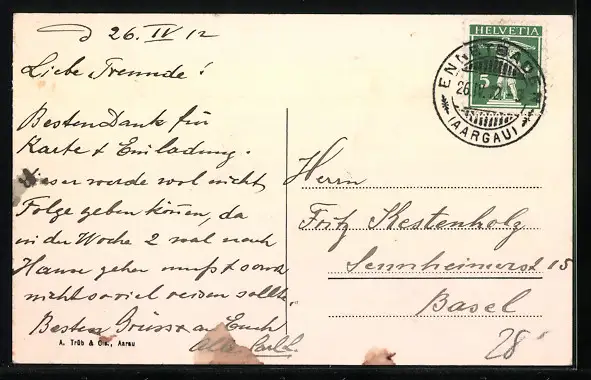 26. IV 12
Liebe Freunde!
Besten Dank für
Karte + Einladung.
werde wol nicht
Folge geben können, da
in der Woche 2 mal nach
Hause gehen muss +
nicht so viel reisen sollte.
Besten Grüsse an Euch
A. Trüb & Cie., Aarau
HELVETIA
5
ENNETBADEN
26.IV.12
(AARGAU)
Herrn
Fritz Kestenholz
Sennheimerst 15
Basel
28